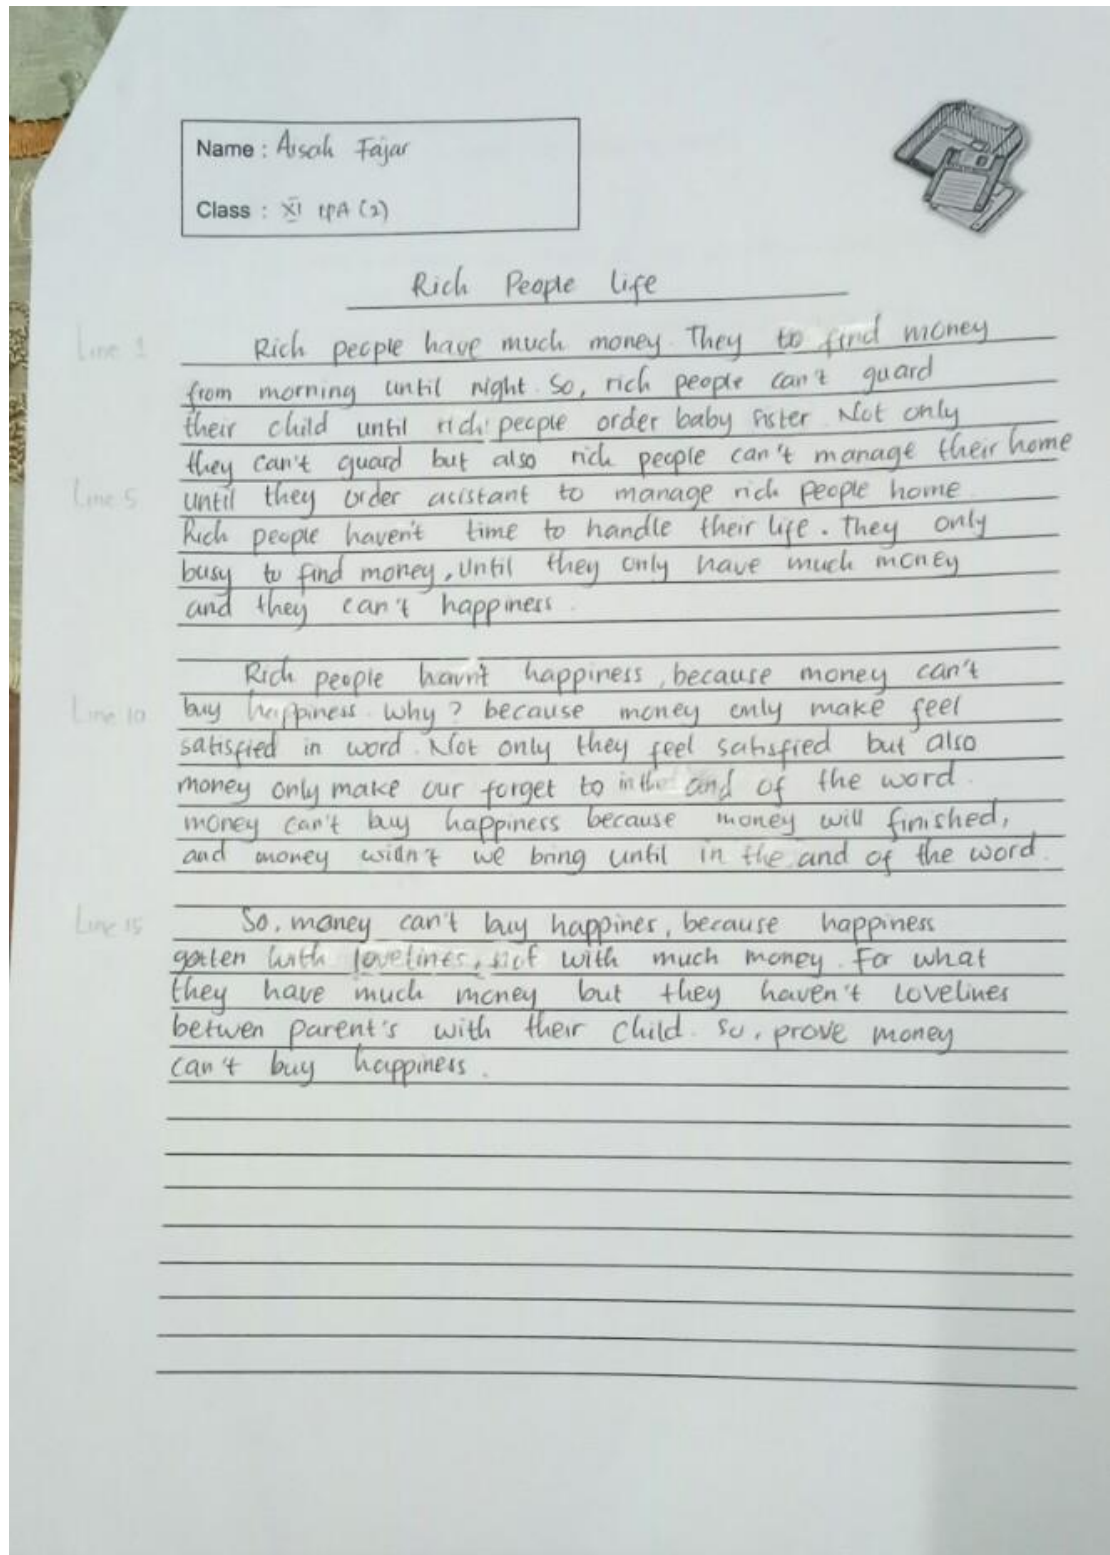 Name : Aisah Fajar
Class : XI IPA (2)
Rich People Life
Line 1
Rich people have much money. They to find money
from morning until night. So, rich people can't guard
their child until rich people order baby sister. Not only
they can't guard but also rich people can't manage their home
Line 5
until they order asistant to manage rich people home.
Rich people haven't time to handle their life. They only
busy to find money, Until they only have much money
and they can't happiness.
Rich people havn't happiness, because money can't
Line 10
buy happiness. Why? because money only make feel
satisfied in word. Not only they feel satisfied but also
money only make our forget to in the and of the word.
money can't buy happiness because money will finished,
and money widn't we bring until in the and of the word.
Line 15
So, money can't buy happines, because happiness
gotten with lovelines, not with much money. For what
they have much money but they haven't lovelines
betwen parent's with their child. So, prove money
can't buy happiness.